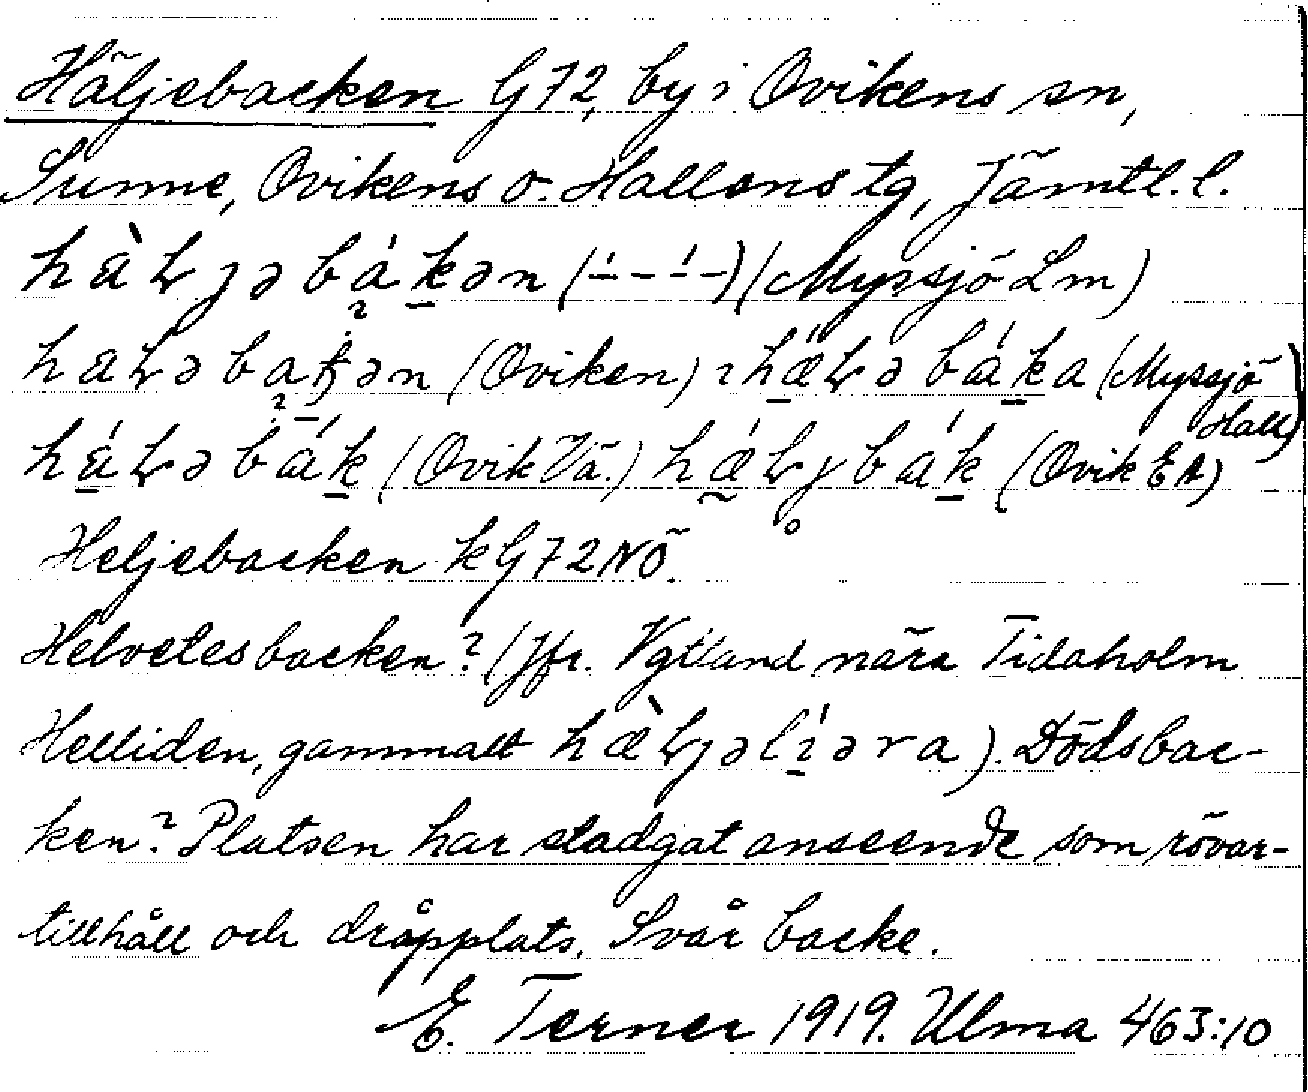 Häljebacken G72, by i Ovikens sn,
Sunne, Ovikens o. Hallens tg, Jämtl. l.
hàꞎȷəbákən (-́--́-) (Myssjö Lm)
haꞎəbakən (Oviken) hǽꞎəbáka (Myssjö Hall)
háꞎəbák (Ovik Vä.) hǽꞎȷbák (Ovik EA)
Heljebacken kG72NÖ.
Helvetesbacken? (Jfr. Vgtland nära Tidaholm
Helliden, gammalt hæ̀ꞎȷəlíəra). Dödsbac-
ken? Platsen har stadgat anseende som rövar-
tillhåll och dråpplats. Svår backe.
E. Terner 1919. Ulma 463:10